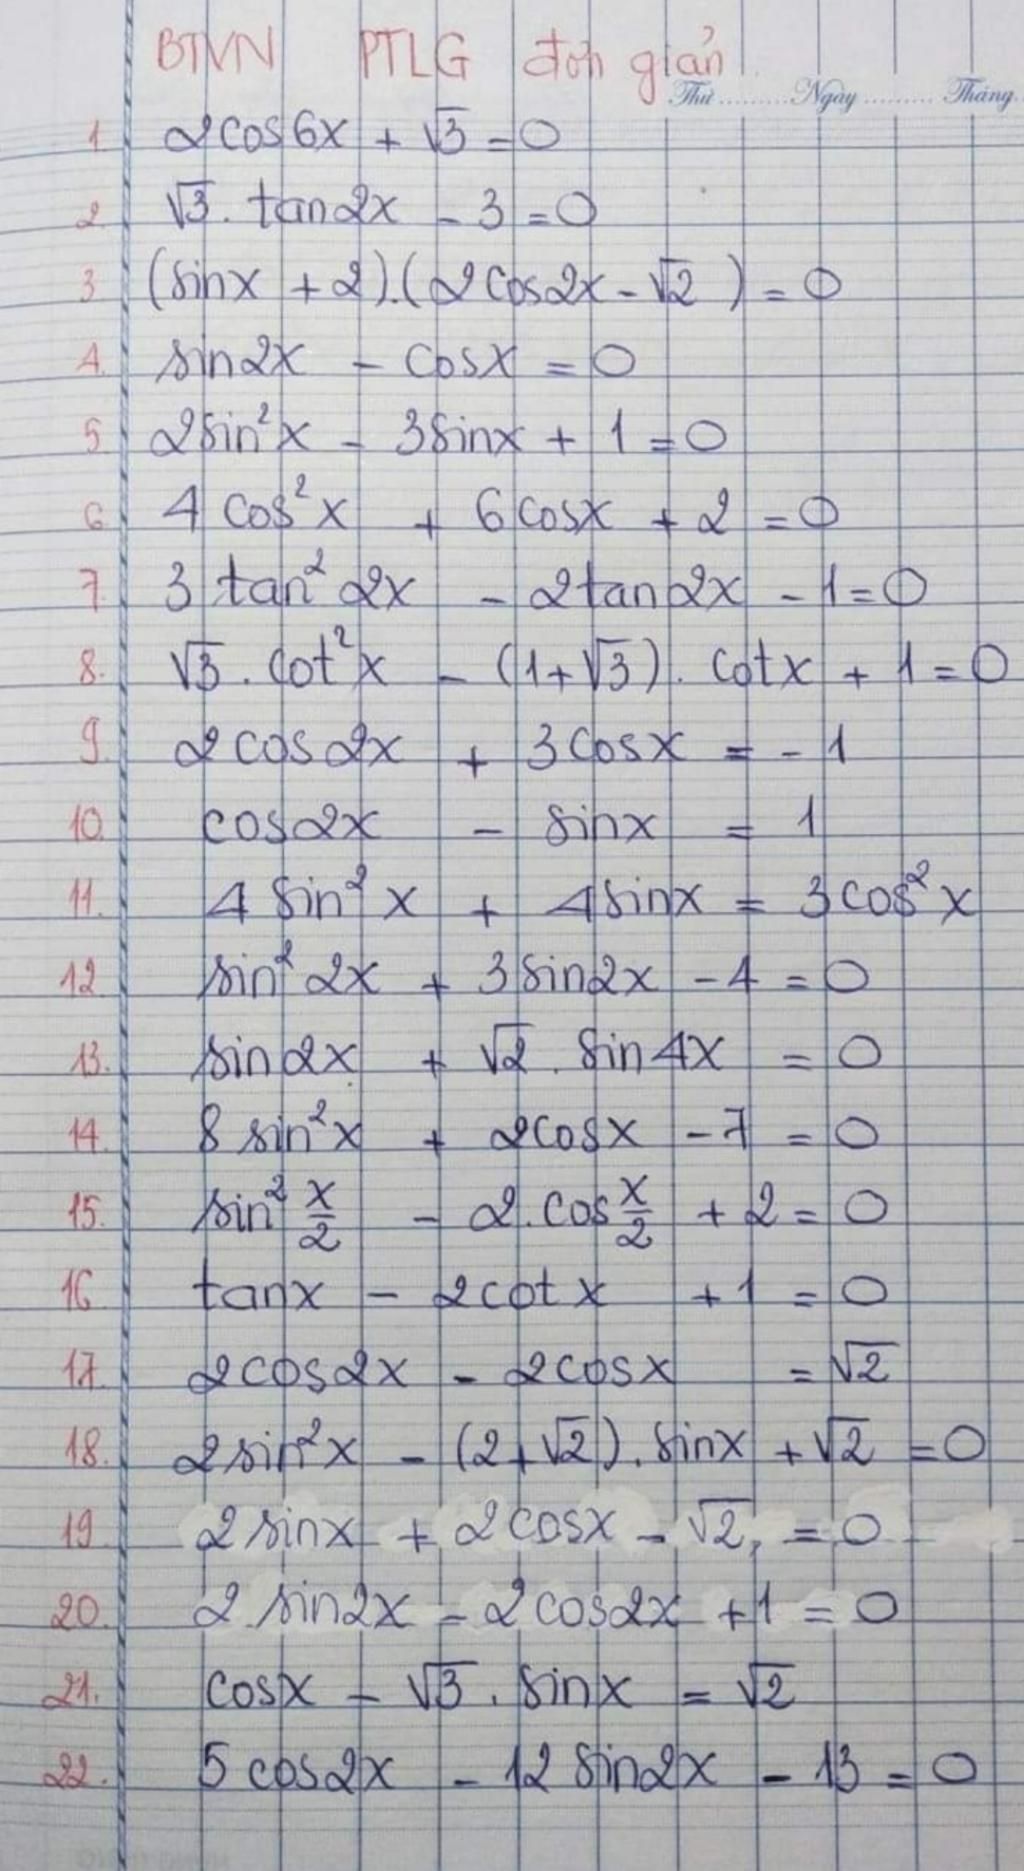 BTVN PTLG đơn giản
Thứ ......... Ngày ......... Tháng.
1 2cos6x + √3 = 0
2. √3 . tan2x - 3 = 0
3 (sinx + 2).(2cos2x - √2 ) = 0
4. sin2x - cosx = 0
5 2sin²x - 3sinx + 1 = 0
6 4 cos²x + 6cosx + 2 = 0
7. 3 tan² 2x - 2tan2x - 1 = 0
8. √3 . cot²x - (1+√3) . cotx + 1 = 0
9. 2cos2x + 3cosx = -1
10. cos2x - sinx = 1
11. 4 sin²x + 4sinx = 3cos²x
12. sin² 2x + 3sin2x - 4 = 0
13. sin2x + √2 . sin4x = 0
14. 8 sin²x + 2cosx - 7 = 0
15. sin² x/2 - 2.cos x/2 + 2 = 0
16 tanx - 2cotx + 1 = 0
17. 2cos2x - 2cosx = √2
18. 2sin²x - (2+√2) . sinx + √2 = 0
19 2sinx + 2cosx - √2 = 0
20. 2 sin2x - 2cos2x + 1 = 0
21. cosx - √3 . sinx = √2
22. 5 cos2x - 12 sin2x - 13 = 0